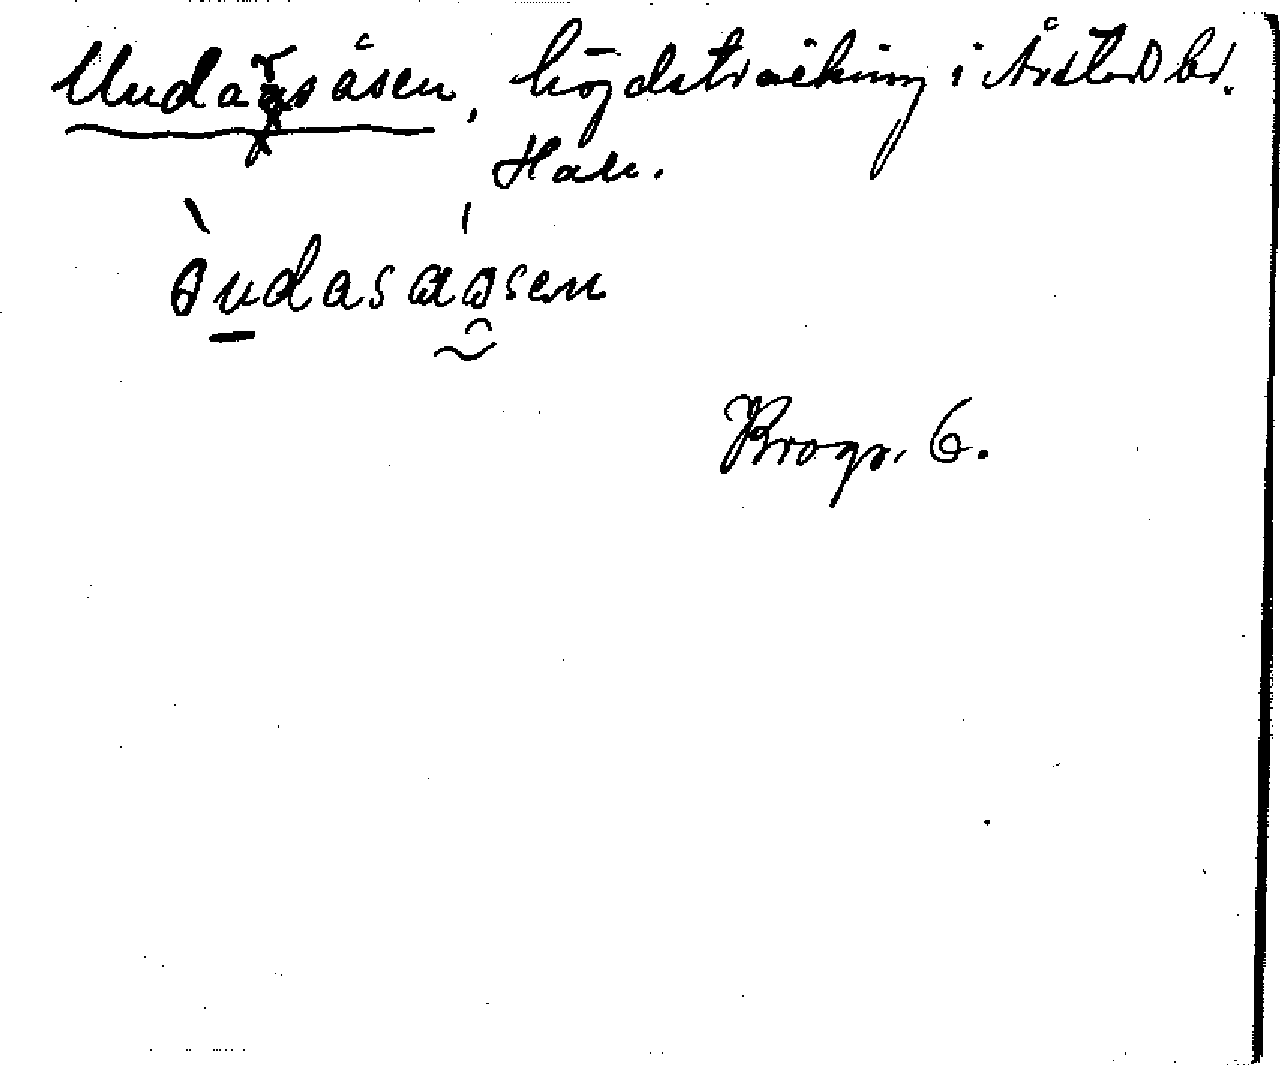 Undarsåsen, höjdsträckning i Årstads hd.
Hall.
òndasåásen
Brogr. 6.